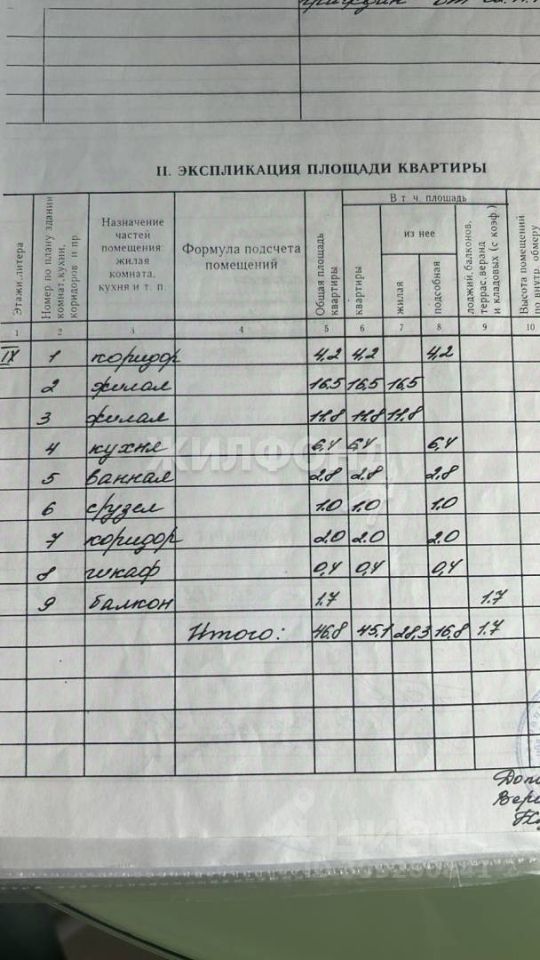 II. ЭКСПЛИКАЦИЯ ПЛОЩАДИ КВАРТИРЫ
Этажи, литера
Номер по плану здания
комнат, кухни,
коридоров и пр.
Назначение
частей
помещения:
жилая
комната,
кухня и т. п.
Формула подсчета
помещений
Общая площадь
квартиры
В т. ч. площадь
квартиры
из нее
жилая
подсобная
лоджий, балконов,
террас, веранд
и кладовых (с коэф.)
Высота помещений
по внутр. обмеру
1 2 3 4 5 6 7 8 9 10
IX 1 коридор 4,2 4,2 4,2
2 жилая 16,5 16,5 16,5
3 жилая 11,8 11,8 11,8
4 кухня 6,4 6,4 6,4
5 ванная 2,8 2,8 2,8
6 с/узел 1,0 1,0 1,0
7 коридор 2,0 2,0 2,0
8 шкаф 0,4 0,4 0,4
9 балкон 1.7 1.7
Итого: 46,8 45,1 28,3 16,8 1.7
ЖИЛФОНД